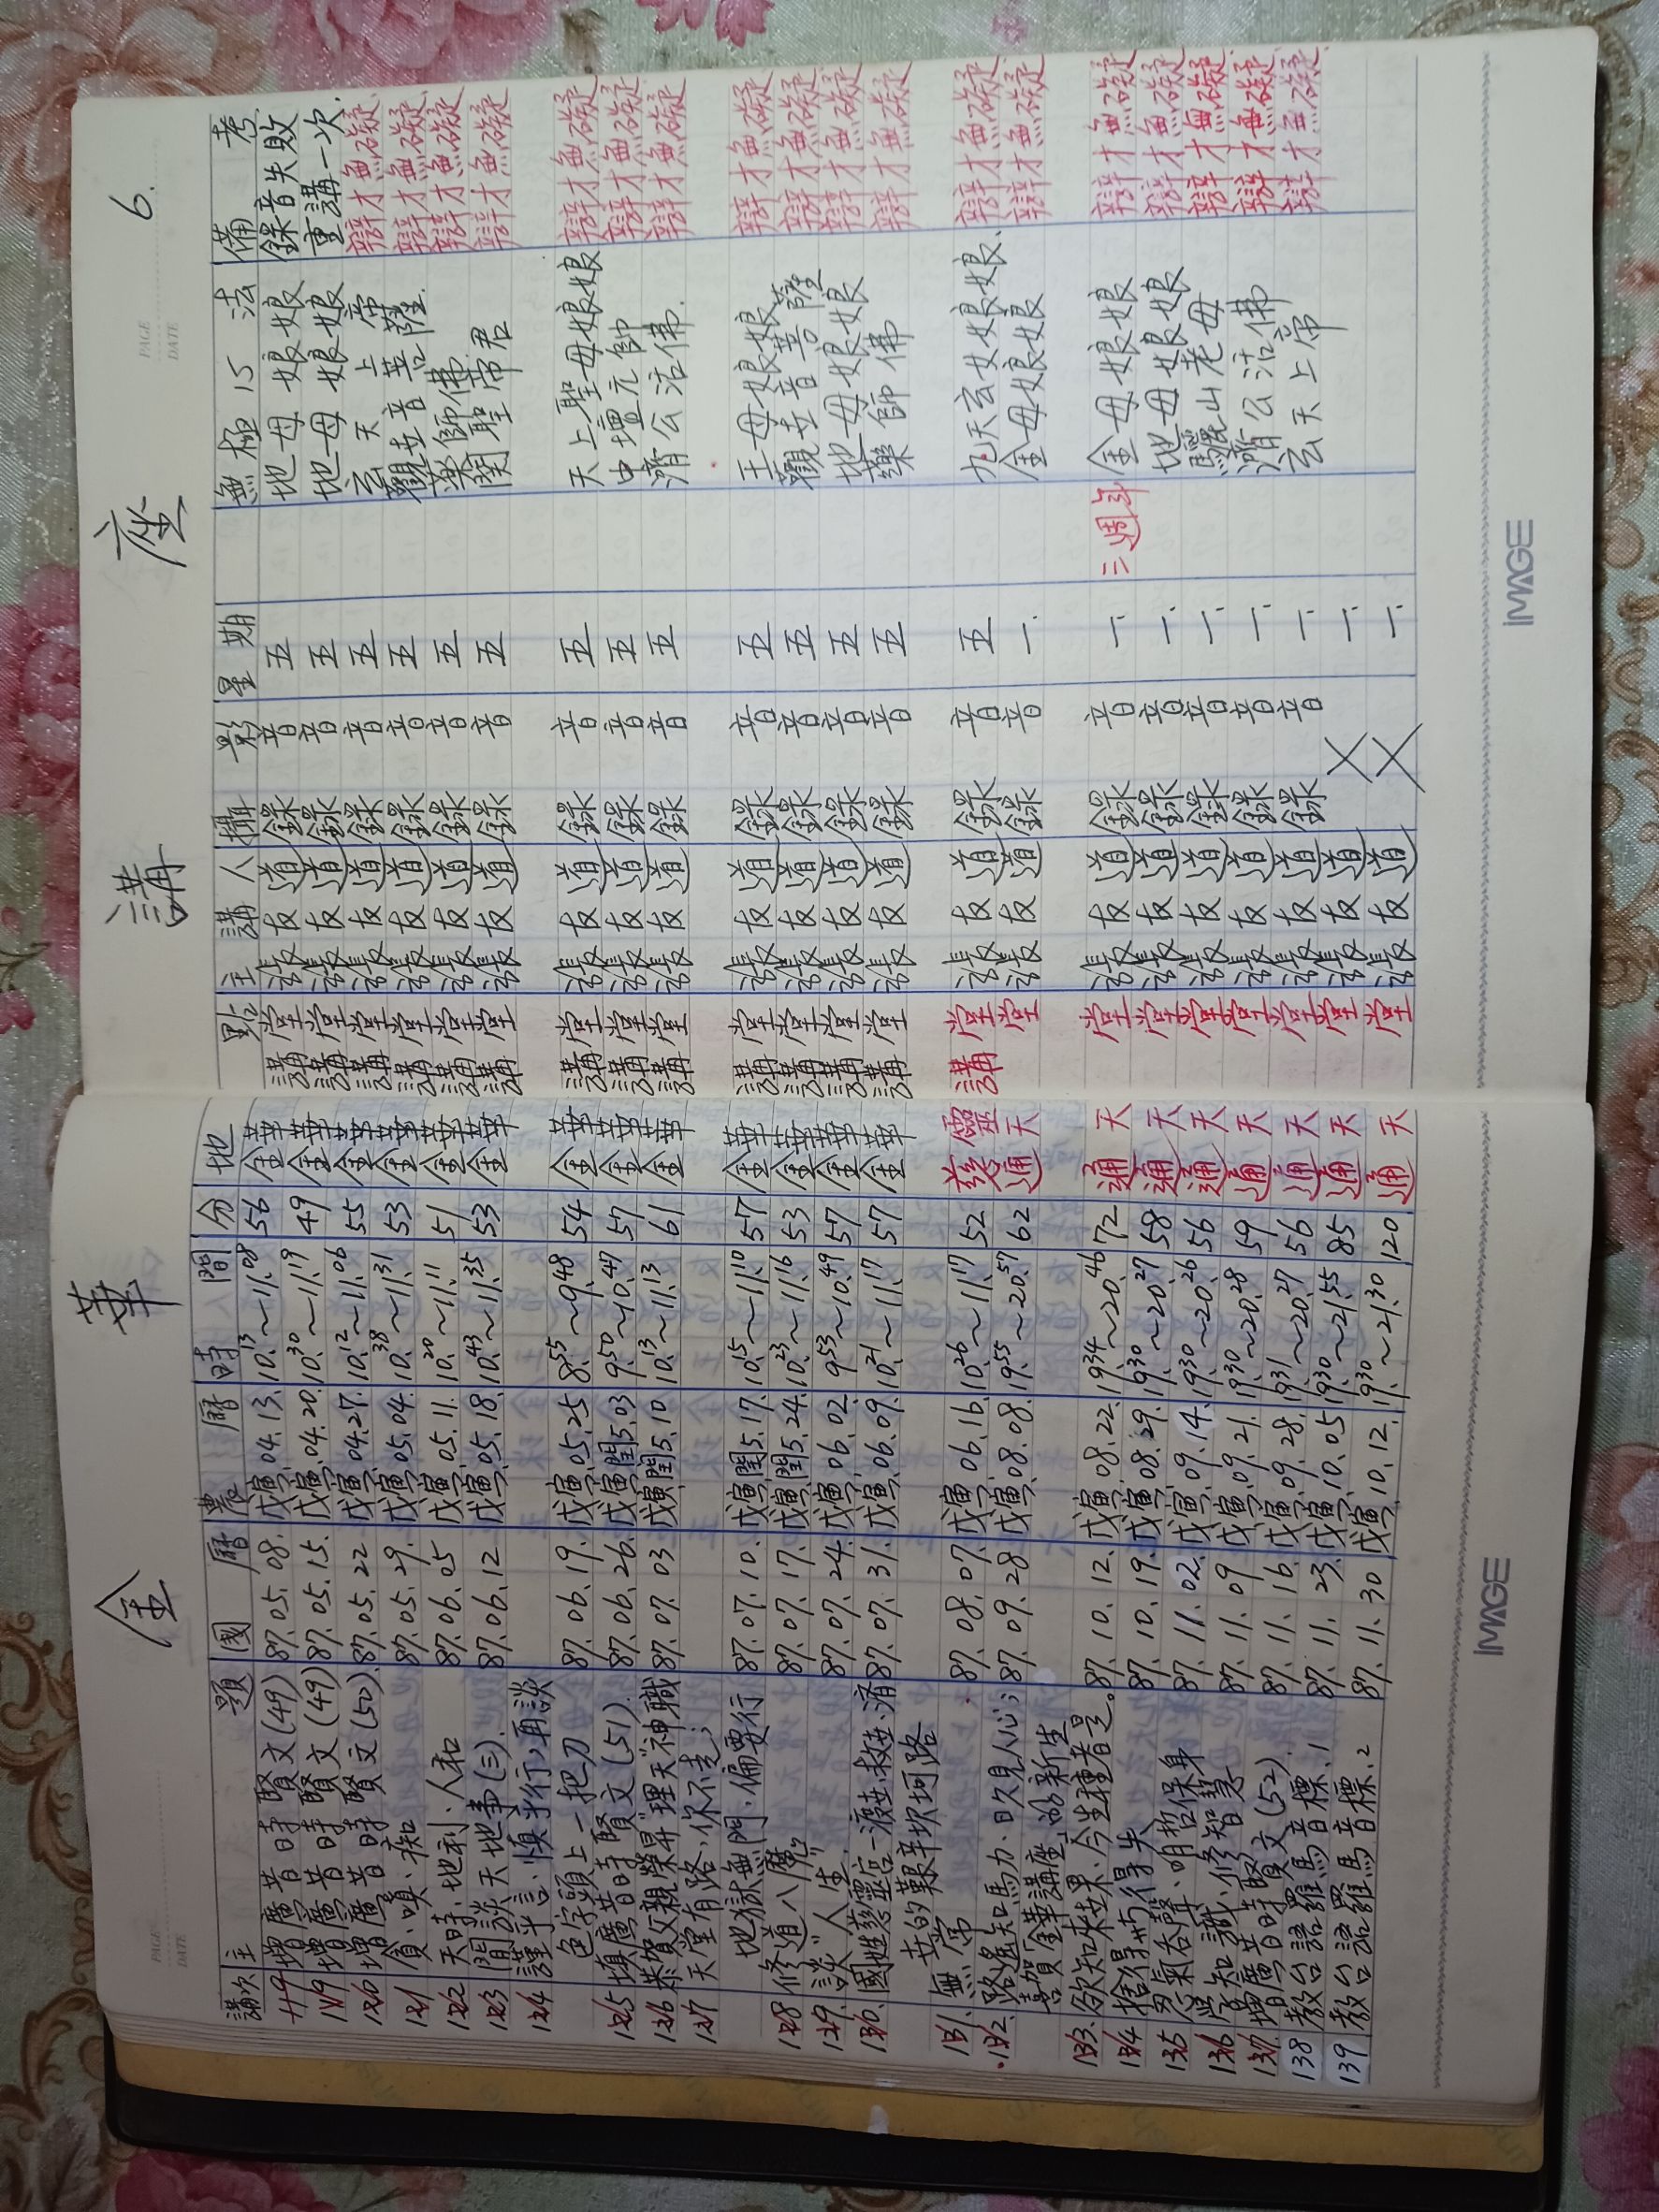 金 華 講 座 6.
PAGE
DATE
PAGE
DATE
講次 主 題 國 曆 農 曆 時 間 分 地 點 主 講 人 攝 影 星 期 無 極 15 法 備 考
119 增廣昔時賢文(49) 87.05.08. 戊寅.04.13. 10.13～11.08 56 金華講堂 友(道) 錄音 五 地母娘娘 錄音失敗
119 增廣昔時賢文(49) 87.05.15. 戊寅.04.20. 10.30～11.19 49 金華講堂 友(道) 錄音 五 地母娘娘 重講一次.
120 增廣昔時賢文(50). 87.05.22 戊寅.04.27. 10.12～11.06 55 金華講堂 友(道) 錄音 五 玄天上帝 辯才無礙.
121 貪.嗔.痴 87.05.29. 戊寅.05.04. 10.38～11.31 53 金華講堂 友(道) 錄音 五 觀世音菩薩. 辯才無礙
122 天時.地利.人和 87.06.05 戊寅.05.11. 10.20～11.11 51 金華講堂 友(道) 錄音 五 藥師佛 辯才無礙
123 閒談天地事(三). 87.06.12 戊寅.05.18. 10.43～11.35 53 金華講堂 友(道) 錄音 五 關聖帝君 辯才無礙
124 謹乎言.慎乎行,再談
色字頭上一把刀 87.06.19. 戊寅.05.25 8.55～9.48 54 金華講堂 友(道) 錄音 五 天上聖母娘娘 辯才無礙
125 增廣昔時賢文(51). 87.06.26. 戊寅閏5.03 9.50～10.47 57 金華講堂 友(道) 錄音 五 中壇元帥 辯才無礙
126 恭賀父親榮昇"理天"神職 87.07.03 戊寅閏5.10 10.13～11.13 61 金華講堂 友(道) 錄音 五 濟公活佛. 辯才無礙
127 天堂有路.你不走;
地獄無門.偏要行 87.07.10. 戊寅閏5.17. 10.15～11.10 57 金華講堂 友(道) 錄音 五 王母娘娘 辯才無礙
128 修道八魔" 87.07.17. 戊寅閏5.24. 10.23～11.16 53 金華講堂 友(道) 錄音 五 觀世音菩薩 辯才無礙
129. 談"人生" 87.07.24. 戊寅.06.02. 9.53～10.49 57 金華講堂 友(道) 錄音 五 地母娘娘 辯才無礙
130. 國姓慈靈宮一渡世.救世.濟 87.07.31. 戊寅.06.09. 10.21～11.17 57 金華講堂 友(道) 錄音 五 藥師佛 辯才無礙
世的艱辛坎坷路
131. 無常 87.08.07. 戊寅.06.16. 10.26～11.17 52 慈靈講堂 友(道) 錄音 五 九天玄女娘娘. 辯才無礙
132. 路遙知馬力.日久見人心; 87.09.28 戊寅.08.08. 19.55～20.57 62 通天堂 友(道) 錄音 一 金母娘娘 辯才無礙
喜賀「金華講座」的新生
133. 欲知來世果.今生種者是。 87.10.12. 戊寅.08.22. 19.34～20.46 72 通天堂 友(道) 錄音 一 三週年 金母娘娘 辯才無礙
134 捨得與得失 87.10.19. 戊寅.08.29. 19.30～20.27 58 通天堂 友(道) 錄音 一 地母娘娘 辯才無礙
135 忍氣吞聲.明哲保身 87.11.02. 戊寅.09.14. 19.30～20.26 56 通天堂 友(道) 錄音 一 驪山老母 辯才無礙
136 學知識.修智慧 87.11.09 戊寅.09.21. 19.30～20.28 59 通天堂 友(道) 錄音 一 濟公活佛 辯才無礙
137. 增廣昔時賢文(52). 87.11.16. 戊寅.09.28. 19.31～20.27 56 通天堂 友(道) 錄音 一 玄天上帝 辯才無礙
138 教台語羅馬音標.1 87.11.23. 戊寅.10.05 19.30～21.55 85 通天堂 友(道) × 一
139 教台語羅馬音標.2 87.11.30 戊寅.10.12. 19.30～21.30 120 通天堂 友(道) × 一
IMAGE
IMAGE